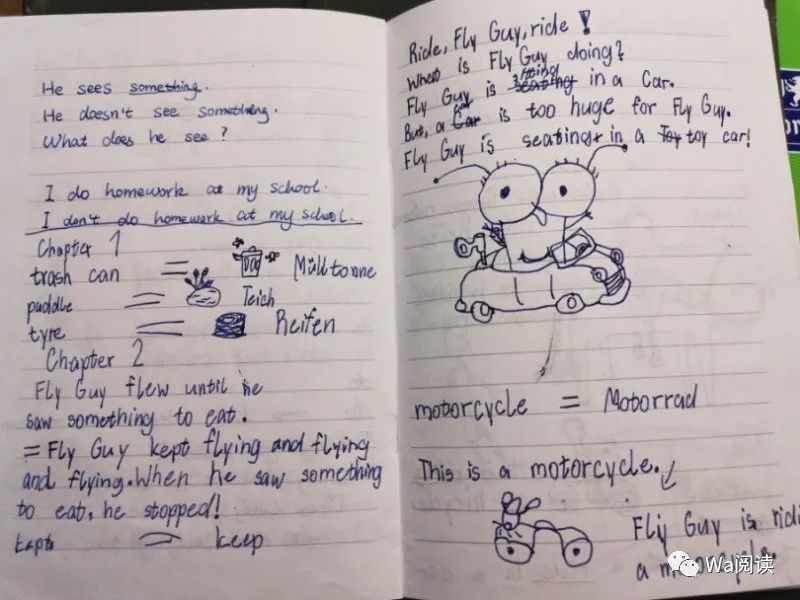 He sees something.
He doesn't see something.
What does he see?
I do homework at my school.
I don't do homework at my school.
Chapter 1
trash can = Mülltonne
puddle = Teich
tyre = Reifen
Chapter 2
Fly Guy flew until he
saw something to eat.
= Fly Guy kept flying and flying
and flying. When he saw something
to eat, he stopped!
= keep
Ride, Fly Guy, ride!
What is Fly Guy doing?
Fly Guy is sitting in a Car.
But, a car is too huge for Fly Guy.
Fly Guy is seating in a toy car!
motorcycle = Motorrad
This is a motorcycle.
Fly Guy is ridi
a motorcycle.
Wa阅读